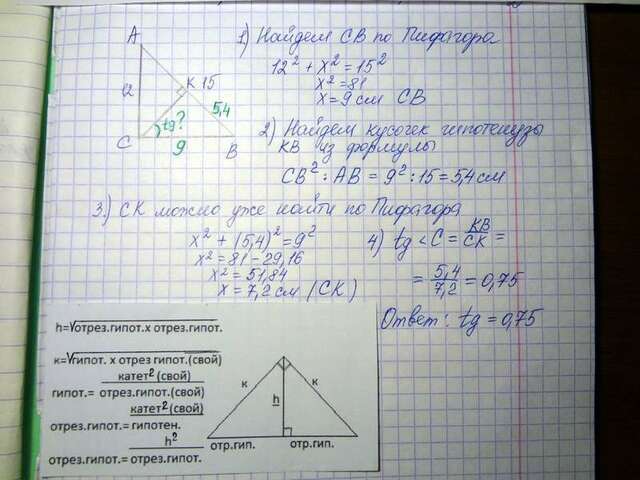 A
12
K 15
5,4
tg?
C
9
B
1) Найдем СВ по Пифагора
12² + x² = 15²
x² = 81
x = 9 см CB
2) Найдем кусочек гипотенузы
KB из формулы
CB² : AB = 9² : 15 = 5,4 см
3.) CK можно уже найти по Пифагора
x² + (5,4)² = 9²
x² = 81 - 29,16
x² = 51,84
x = 7,2 см (CK)
4) tg < C = KB/CK =
= 5,4/7,2 = 0,75
Ответ: tg = 0,75
h=√отрез.гипот.х отрез.гипот.
к=√гипот. х отрез гипот.(свой)
катет²(свой)
гипот.= отрез.гипот.(свой)
катет²(свой)
отрез.гипот.=гипотен.
h²
отрез.гипот.= отрез.гипот.
к
к
h
отр.гип.
отр.гип.